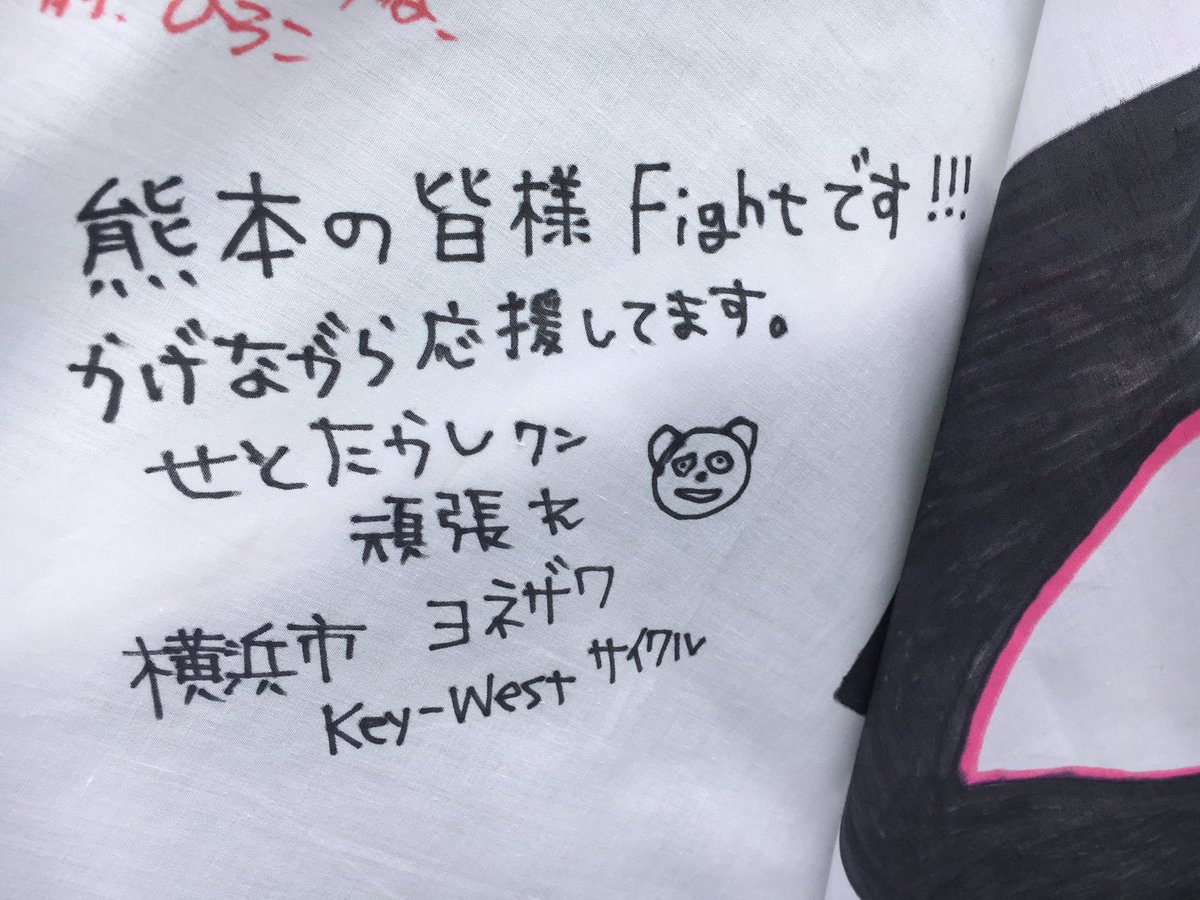 ひろこ
熊本の皆様 Fightです!!!
かげながら応援してます。
せとたかしクン
頑張れ
横浜市 ヨネザワ
Key-West サイクル